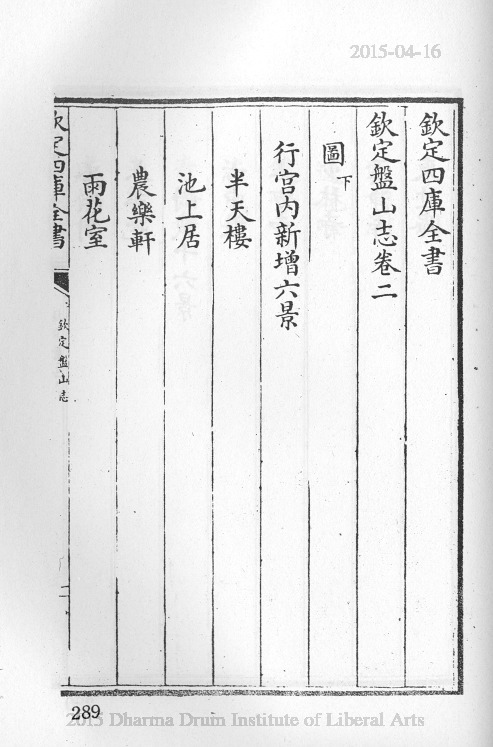 2015-04-16
欽定四庫全書
欽定盤山志卷二
圖下
行宫内新增六景
半天樓
池上居
農樂軒
雨花室
欽定四庫全書
欽定盤山志
289
2015 Dharma Drum Institute of Liberal Arts